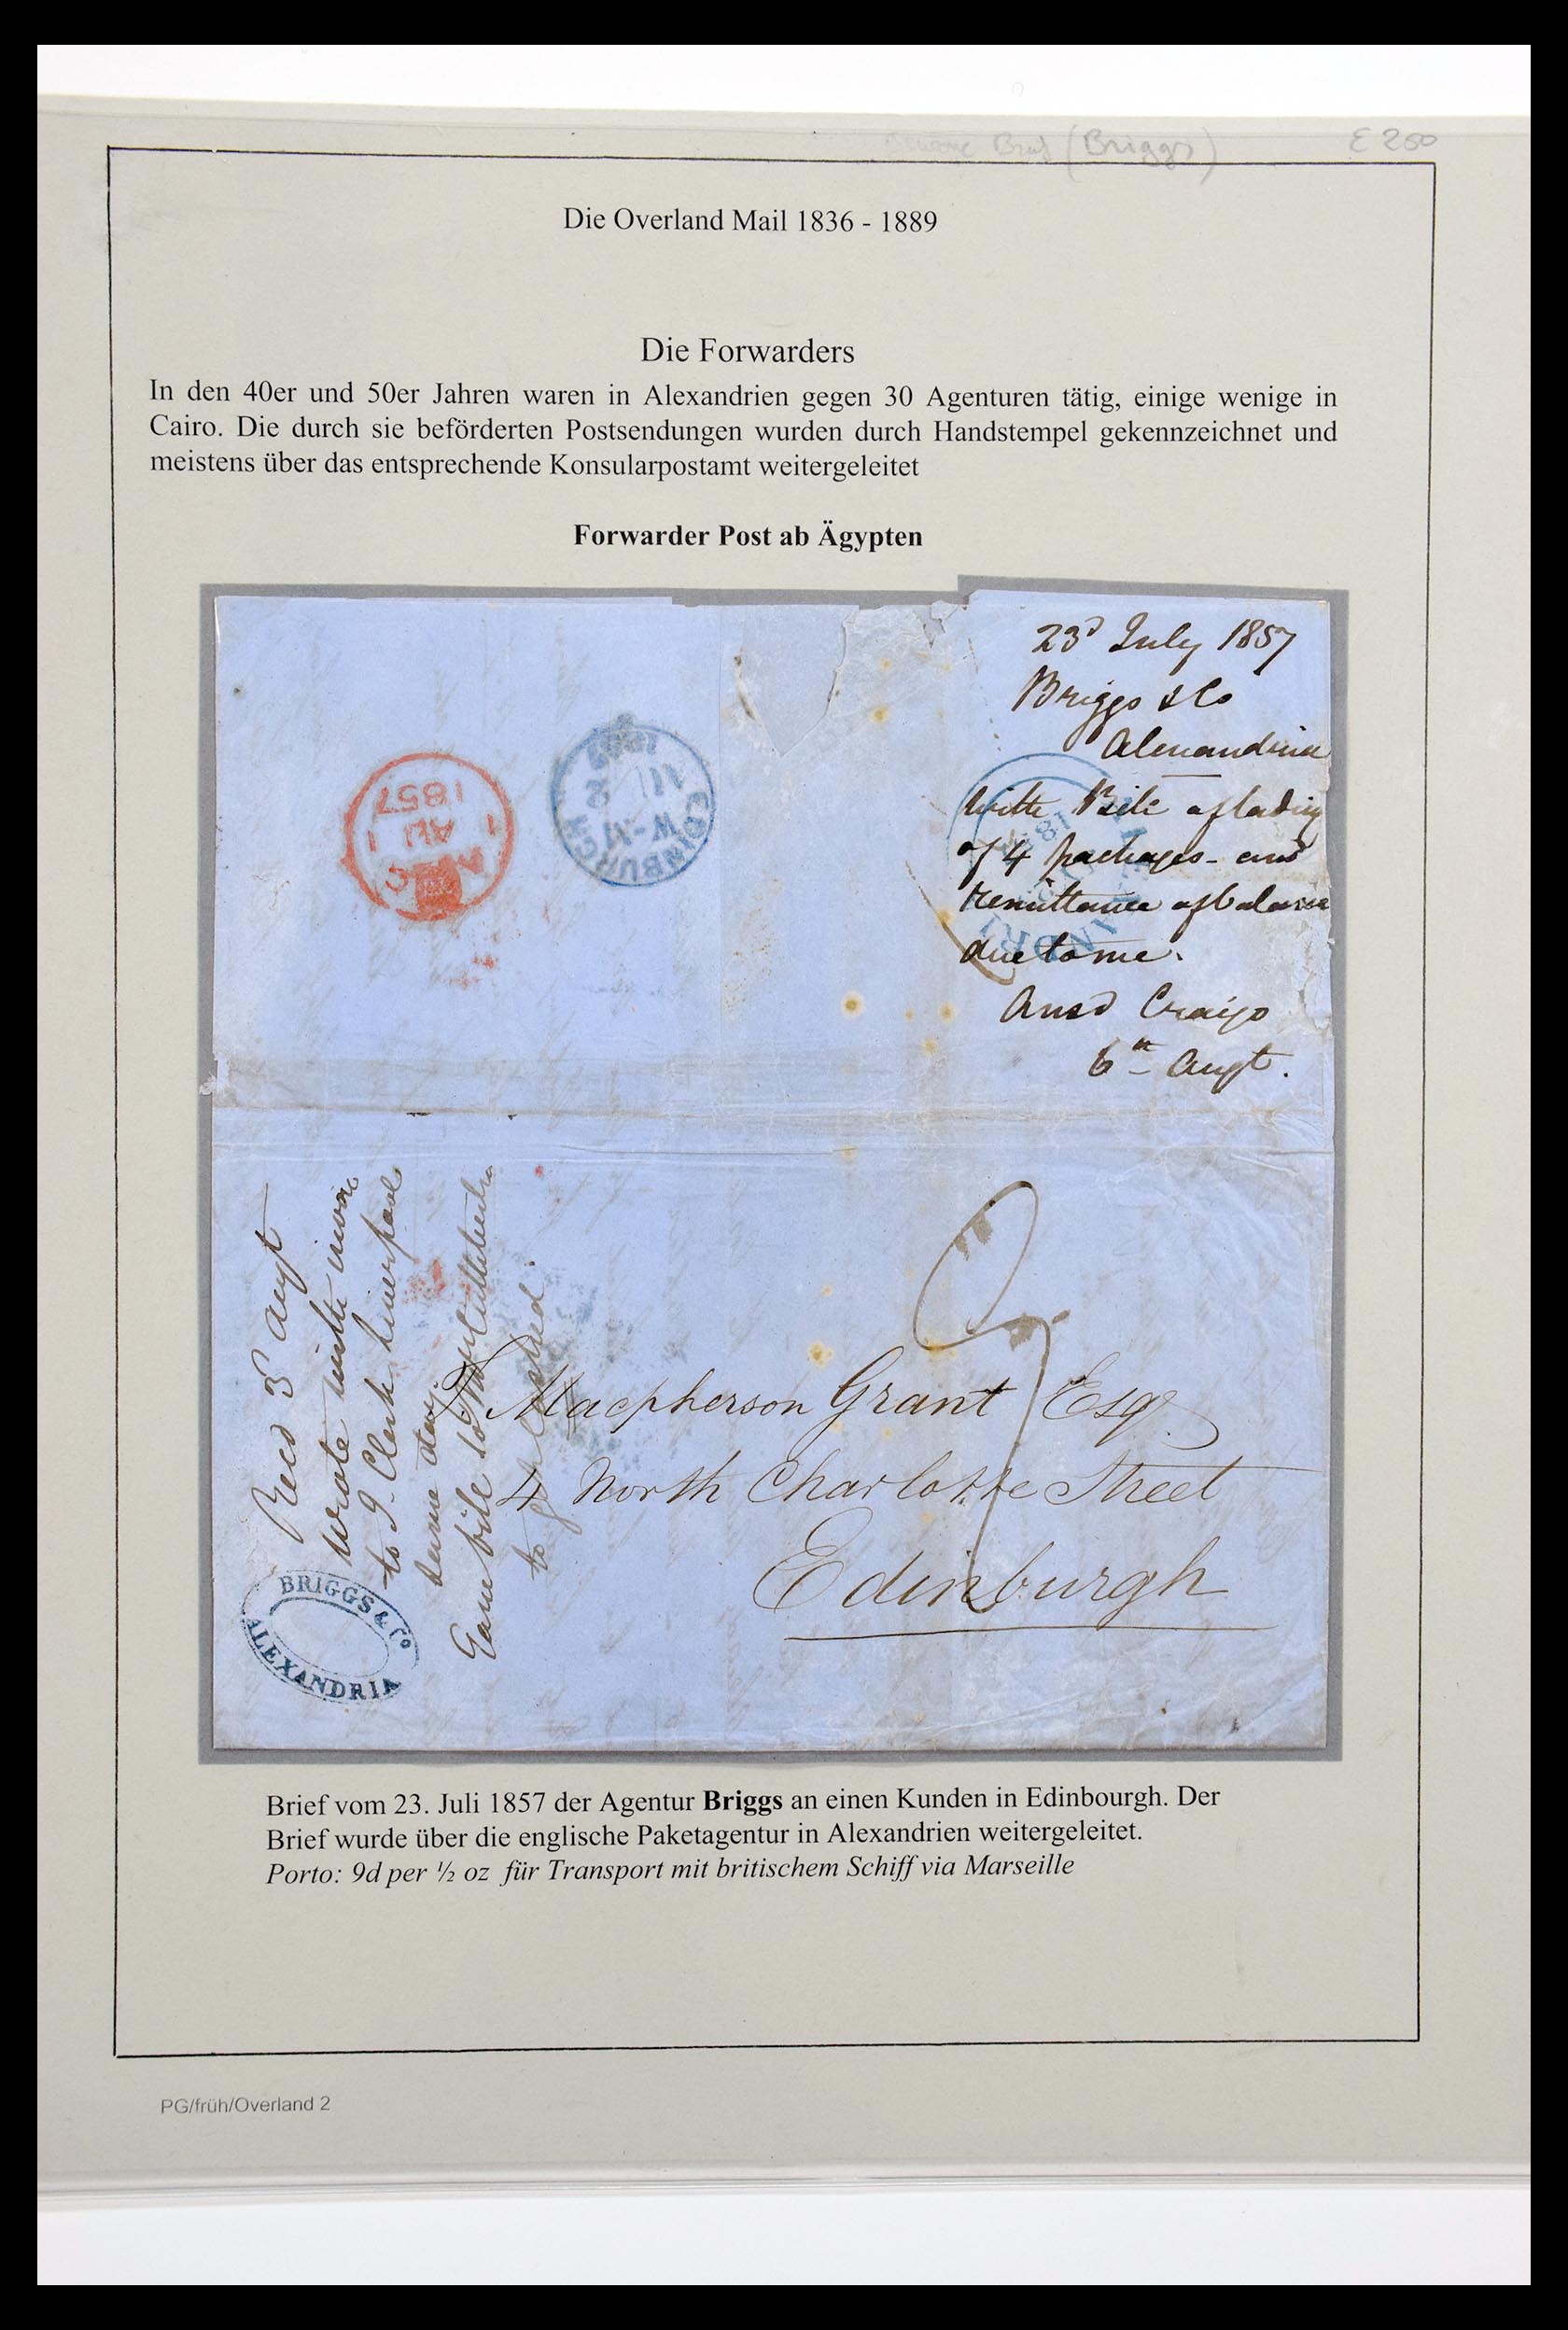 (Briggs)
£ 200
Die Overland Mail 1836 - 1889
Die Forwarders
In den 40er und 50er Jahren waren in Alexandrien gegen 30 Agenturen tätig, einige wenige in
Cairo. Die durch sie beförderten Postsendungen wurden durch Handstempel gekennzeichnet und
meistens über das entsprechende Konsularpostamt weitergeleitet
Forwarder Post ab Ägypten
23d July 1857
Briggs & Co
Alexandria
with Bill of lading
of 4 packages - and
remittance of balance
due to me.
Ansd Craigo
6th Augt.
1857
1 AU 1
EDINBURGH
Recd 3 Augt
wrote with
to J. Clerk Liverpool
same day
Gave bill to
to
Macpherson Grant Esqr
4 North Charlotte Street
Edinburgh
9
BRIGGS & Co
ALEXANDRIA
Brief vom 23. Juli 1857 der Agentur Briggs an einen Kunden in Edinbourgh. Der
Brief wurde über die englische Paketagentur in Alexandrien weitergeleitet.
Porto: 9d per ½ oz für Transport mit britischem Schiff via Marseille
PG/früh/Overland 2